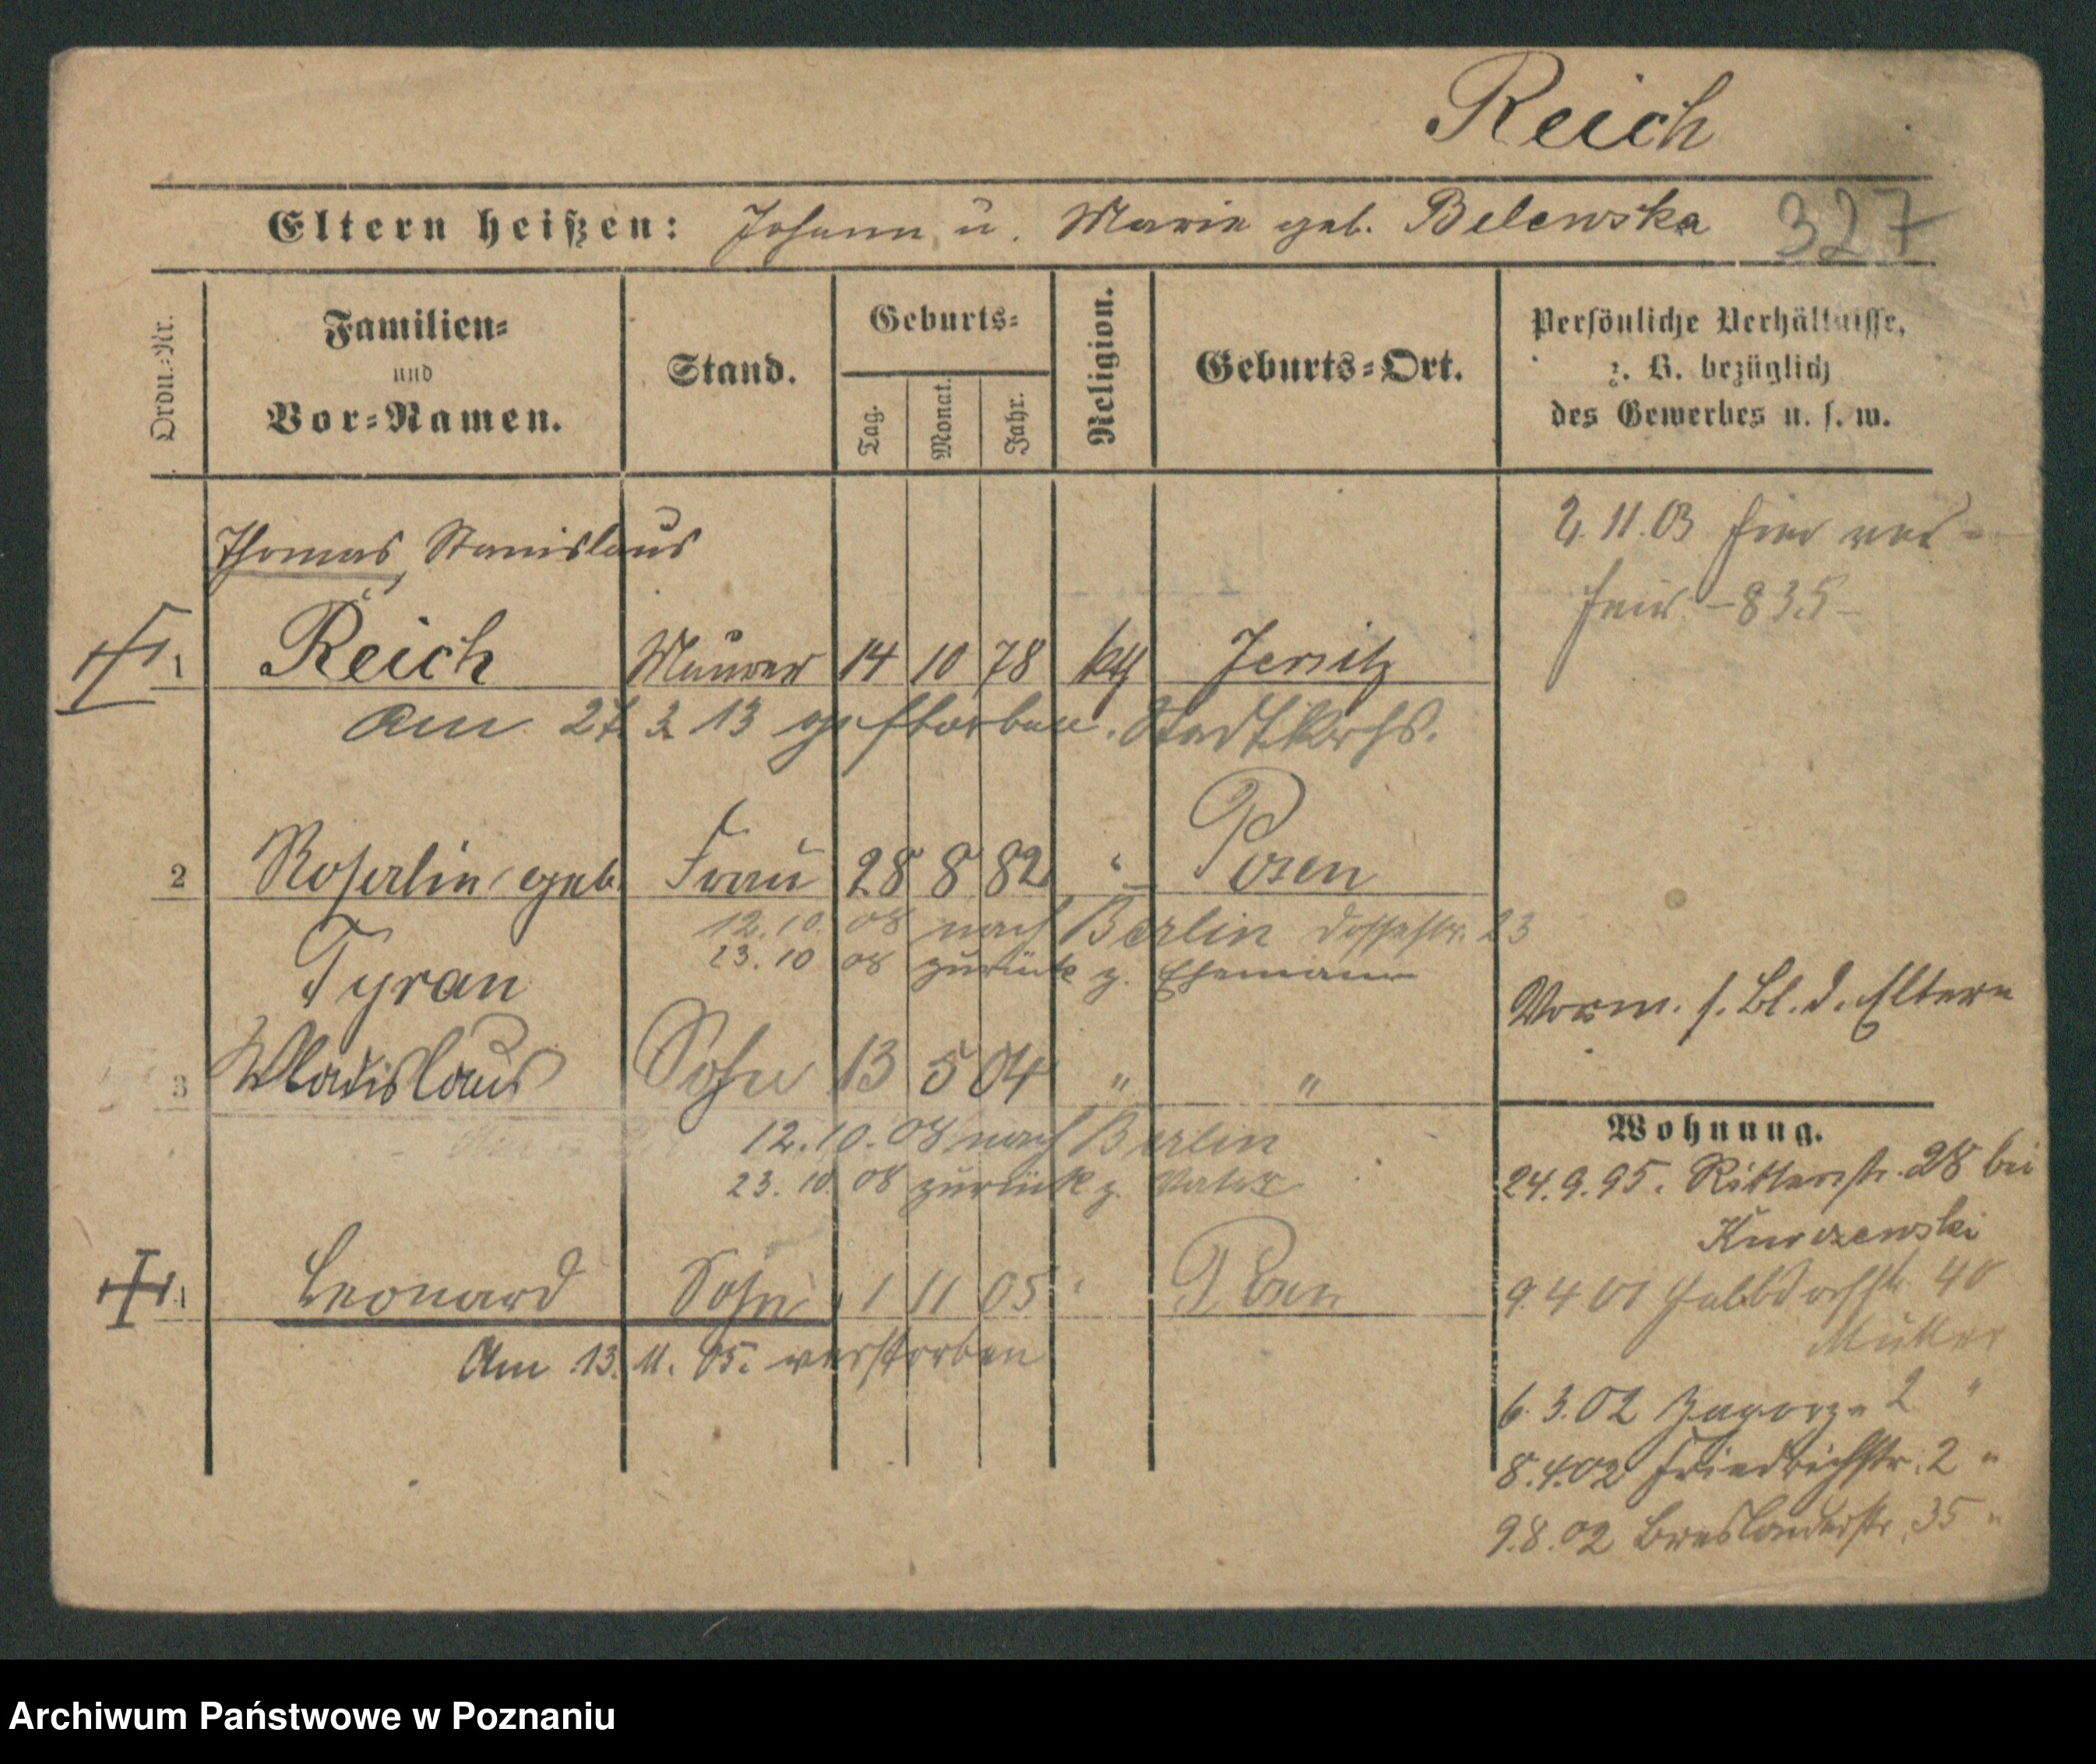 Reich
Eltern heißen: Johann u. Marie geb. Belewska 327
Ordn.-Nr.
Familien-
und
Vor-Namen.
Stand.
Geburts-
Tag.
Monat.
Jahr.
Religion.
Geburts-Ort.
Persönliche Verhältnisse,
z. B. bezüglich
des Gewerbes u. s. w.
Thomas, Stanislaus
1 Reich Maurer 14 10 78 kth Jersitz
am 27. 3. 13 gestorben. Stadtkrhs.
2. 11. 03 hier ver-
heir. -835-
2 Rosalin geb. Frau 28 8 82 " Posen
Tyran
12. 10. 08 nach Berlin 23
23. 10 08 zurück z. Ehemann
Vorm. s. Bl. d. Eltern
3 Wladislaus Sohn 13 5 04 " "
12. 10. 08 nach Berlin
23. 10. 08 zurück z. Vater
4 Leonard Sohn 1 11 05 " Posen
Am 13. 11. 05. verstorben
Wohnung.
24. 9. 95. Ritterstr. 28 bei
Kurczewski
9. 4 01 Halbdorfstr 40
Mutter
6. 3. 02 Zagorze 2 "
8. 4. 02 Friedrichstr. 2 "
9. 8. 02 Breslauerstr. 35 "
Archiwum Państwowe w Poznaniu